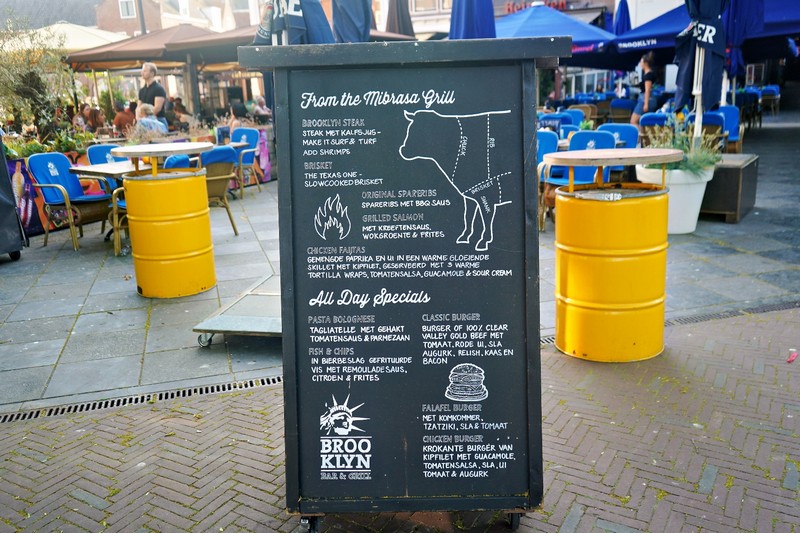 From the Mibrasa Grill
BROOKLYN STEAK
STEAK MET KALFSJUS -
MAKE IT SURF & TURF
ADD SHRIMPS
BRISKET
THE TEXAS ONE -
SLOWCOOKED BRISKET
ORIGINAL SPARERIBS
SPARERIBS MET BBQ SAUS
GRILLED SALMON
MET KREEFTENSAUS,
WOKGROENTE & FRITES
CHUCK
RIB
BRISKET
SHANK
CHICKEN FAJITAS
GEMENGDE PAPRIKA EN UI IN EEN WARME GLOEIENDE
SKILLET MET KIPFILET, GESERVEERD MET 3 WARME
TORTILLA WRAPS, TOMATENSALSA, GUACAMOLE & SOUR CREAM
All Day Specials
PASTA BOLOGNESE
TAGLIATELLE MET GEHAKT
TOMATENSAUS & PARMEZAAN
FISH & CHIPS
IN BIERBESLAG GEFRITUURDE
VIS MET REMOULADESAUS,
CITROEN & FRITES
CLASSIC BURGER
BURGER OF 100% CLEAR
VALLEY GOLD BEEF MET
TOMAAT, RODE UI, SLA
AUGURK, RELISH, KAAS EN
BACON
FALAFEL BURGER
MET KOMKOMMER,
TZATZIKI, SLA & TOMAAT
CHICKEN BURGER
KROKANTE BURGER VAN
KIPFILET MET GUACAMOLE,
TOMATENSALSA, SLA, UI
TOMAAT & AUGURK
BROO
KLYN
BAR & GRILL
BROOKLYN